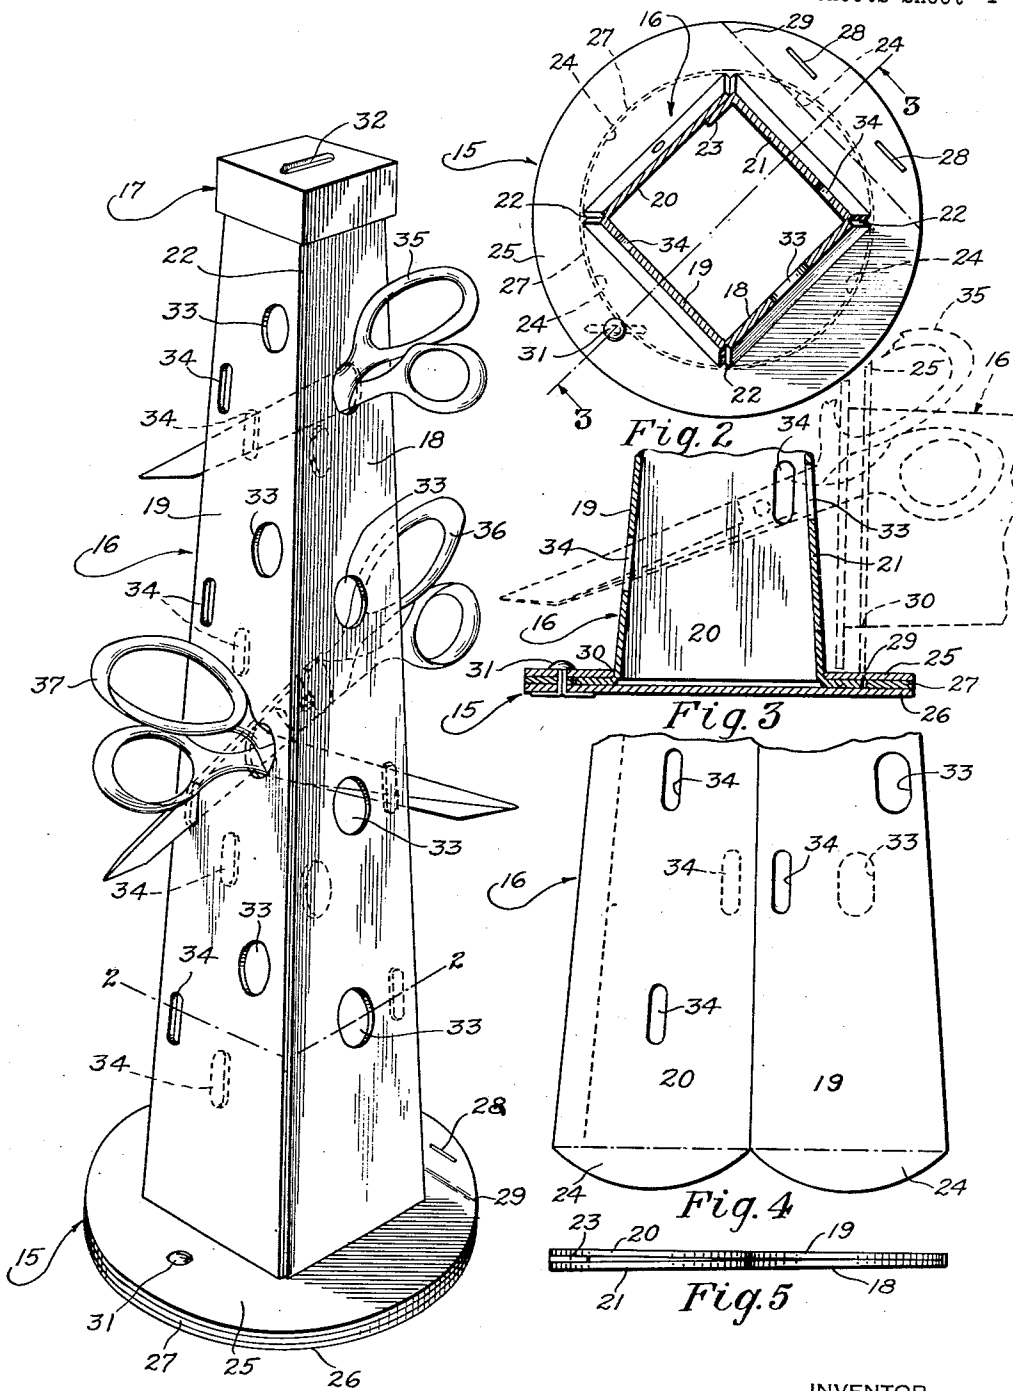 32
17
22
35
33
34
34
18
19
33
33
36
16
34
37
33
34
33
34
2
2
33
34
28
29
15
31
27
25
26
29
16
27
28
24
24
3
15
23
21
34
28
22
20
22
25
34
33
24
27
19
18
24
31
22
35
25
16
3
Fig. 2
34
19
33
34
21
16
20
30
31
30
29
25
27
15
26
Fig. 3
34
33
34
34
33
16
34
20
19
24
24
Fig. 4
23
20
19
21
18
Fig. 5
INVENTOR